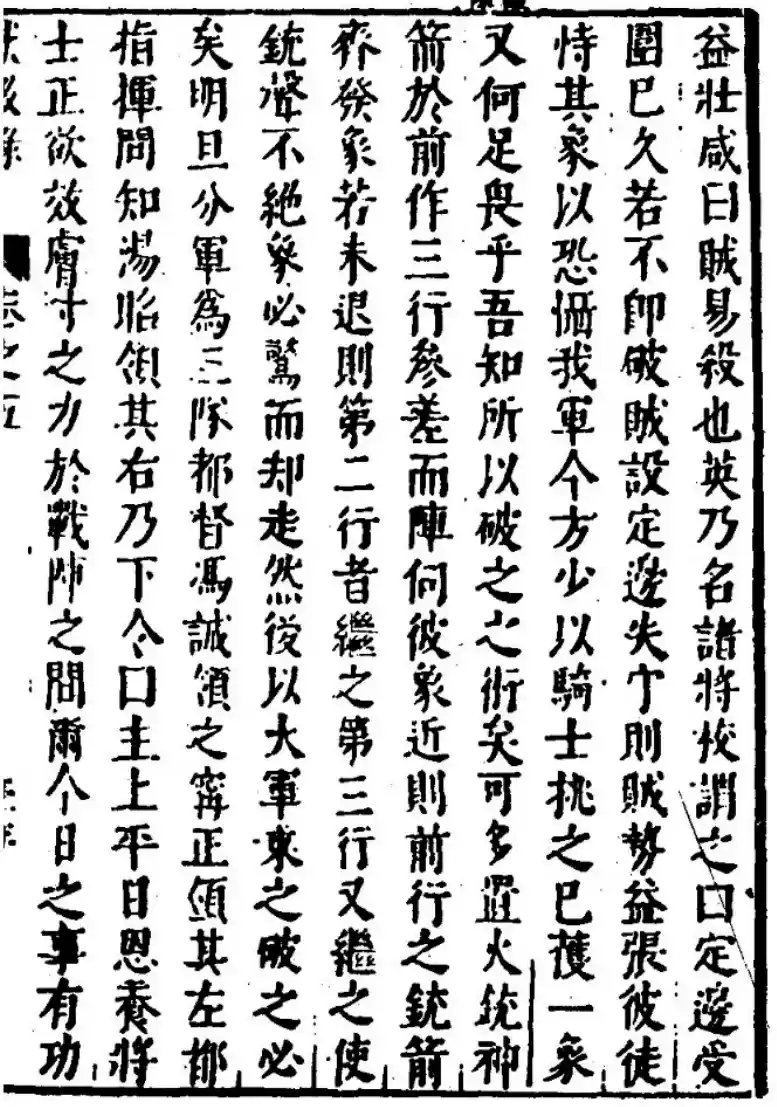 益壯咸曰賊易殺也英乃名諸將校謂之曰定邊受
圍已久若不卽破賊設定邊失守則賊勢益張彼徒
恃其象以恐惴我軍今方少以騎士挑之已獲一象
又何足畏乎吾知所以破之之術矣可多置火銃神
箭於前作三行參差而陣伺彼象近則前行之銃箭
齊發象若未退則第二行者繼之第三行又繼之使
銃聲不絶象必驚而却走然後以大軍乘之破之必
矣明旦分軍為三隊都督馮誠領之甯正領其左都
指揮同知湯昭領其右乃下令曰主上平日恩養將
士正欲效膚寸之力於戰陣之間爾今日之事有功